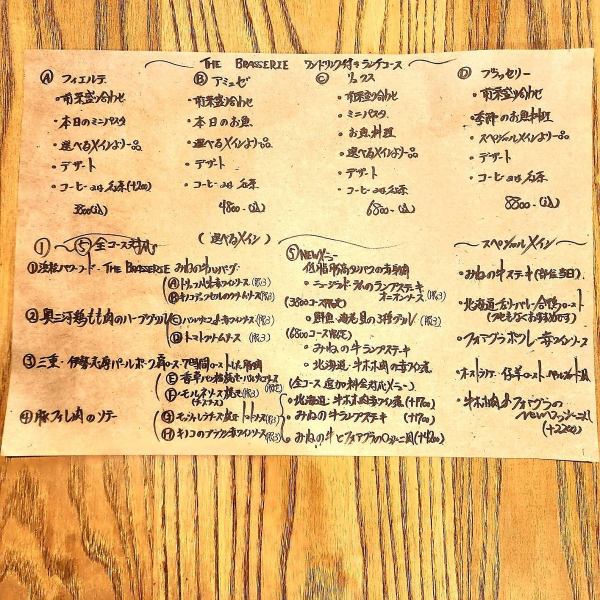 THE BRASSERIE ワンドリンク付きランチコース
Ⓐ フィエルテ
・前菜盛り合わせ
・本日のミニパスタ
・選べるメインより一品
・デザート
・コーヒー or 紅茶(+200)
3800-(込)
Ⓑ アミュゼ
・前菜盛り合わせ
・本日のお魚
・選べるメインより一品
・デザート
・コーヒー or 紅茶
4800-(込)
Ⓒ リュクス
・前菜盛り合わせ
・ミニパスタ
・お魚料理
・選べるメインより一品
・デザート
・コーヒー or 紅茶
6800-(込)
Ⓓ ブラッセリー
・前菜盛り合わせ
・季節のお魚料理
・スペシャルメインより一品
・デザート
・コーヒー or 紅茶
8800-(込)
①〜⑤全コース対応 (選べるメイン)
①浜松パワーフード・THE BRASSERIE みねの牛ハンバーグ
Ⓐトリュフ 赤ワインソース(限3)
Ⓑキノコデュクセルのクリームソース(限3)
②奥三河鶏もも肉のハーブグリル
Ⓒバルサミコ赤ワインソース(限3)
Ⓓトマトクリームソース(限3)
③三重・伊勢志摩パールポーク肩ロース・7時間ローストした豚肉
Ⓔ香草パン粉焼きバルサミコソース(限3)
Ⓕモルネソース焼き(限3)
(チーズソース)
④豚フィレ肉のソテー
Ⓖモッツァレラチーズ焼きトマトソース(限3)
Ⓗキノコのブラウン赤ワインソース(限3)
⑤NEWメニュー
低脂肪高タンパクの赤身肉
・ニュージーランド产のランプステーキ
オニオンソース(限3)
(3800コース限定)
・鮮魚・海老貝の3種グリル(限3)
(6800コース限定)
・みねの牛ランプステーキ
・北海道・牛ホホ肉赤ワイン煮
(全コース 追加料金対応メニュー)
・北海道・牛ホホ肉赤ワイン煮(+1700)
・みねの牛ランプステーキ(+1700)
・みねの牛とフォアグラのロッシーニ風(+4200)
スペシャルメイン
・みねの牛ステーキ(部位当日)
・北海道・合鴨ロースト
・フォアグラポワレ・赤ワインソース
・オーストラリア・仔羊ロースト
・牛ホホ肉とフォアグラの
NEWロッシーニ風
(+2200)